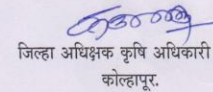 जिल्हा अधिक्षक कृषि अधिकारी
कोल्हापूर.